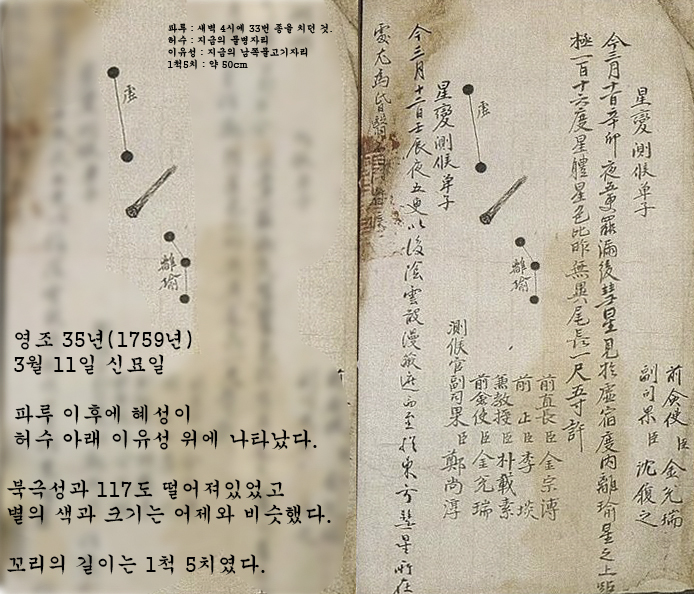 파루 : 새벽 4시에 33번 종을 치던 것.
허수 : 지금의 물병자리
이유성 : 지금의 남쪽물고기자리
1척5치 : 약 50cm
虛
離瑜
영조 35년(1759년)
3월 11일 신묘일
파루 이후에 혜성이
허수 아래 이유성 위에 나타났다.
북극성과 117도 떨어져있었고
별의 색과 크기는 어제와 비슷했다.
꼬리의 길이는 1척 5치였다.
星變測候單子
今三月十一日辛卯夜五更罷漏後彗星見於虛宿度內離瑜星之上
極一百十六度星體星色比昨無異尾長一尺五寸許
前僉使臣金兌瑞
副司果臣沈履之
虛
離瑜
星變測候單子
今三月十二日壬辰夜五更以後陰雲散漫蔽遮而至於東方彗星所在
處尤為昏翳
前直長臣金宗溥
前正臣李琰
兼教授臣朴載素
前僉使臣金兌瑞
測候官副司果臣鄭尚淳